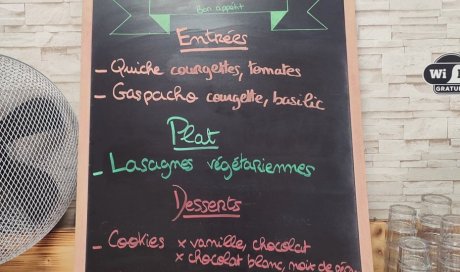 Bon appétit
Entrées
- Quiche courgettes, tomates
- Gaspacho courgette, basilic
Plat
- Lasagnes végétariennes
Desserts
- Cookies x vanille, chocolat
x chocolat blanc, noix de
Wi
GRATUI